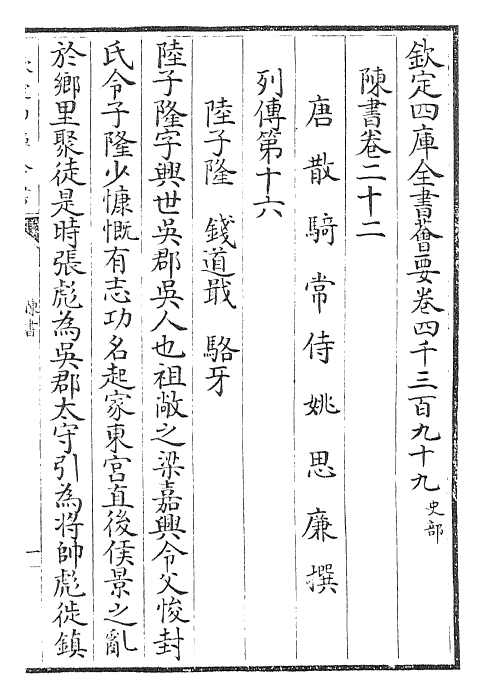 欽定四庫全書薈要卷四千三百九十九 史部
陳書卷二十二
唐散騎常侍姚思廉撰
列傳第十六
陸子隆 錢道戢 駱牙
陸子隆字興世吳郡吳人也祖敞之梁嘉興令父悛封
氏令子隆少慷慨有志功名起家東宮直後侯景之亂
於鄉里聚徒是時張彪為吳郡太守引為將帥彪徙鎮
陳書
一